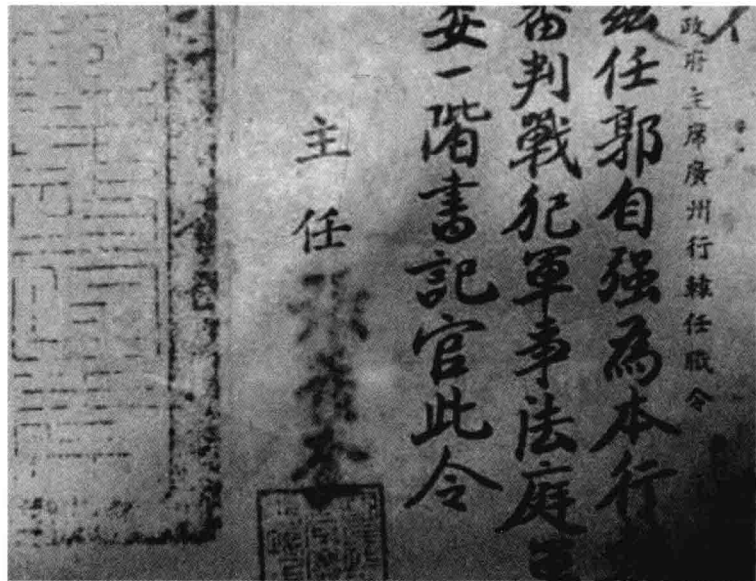 政府主席廣州行轅任職令
茲任郭自强為本行
審判戰犯軍事法庭
委一階書記官此令
主任張發奎